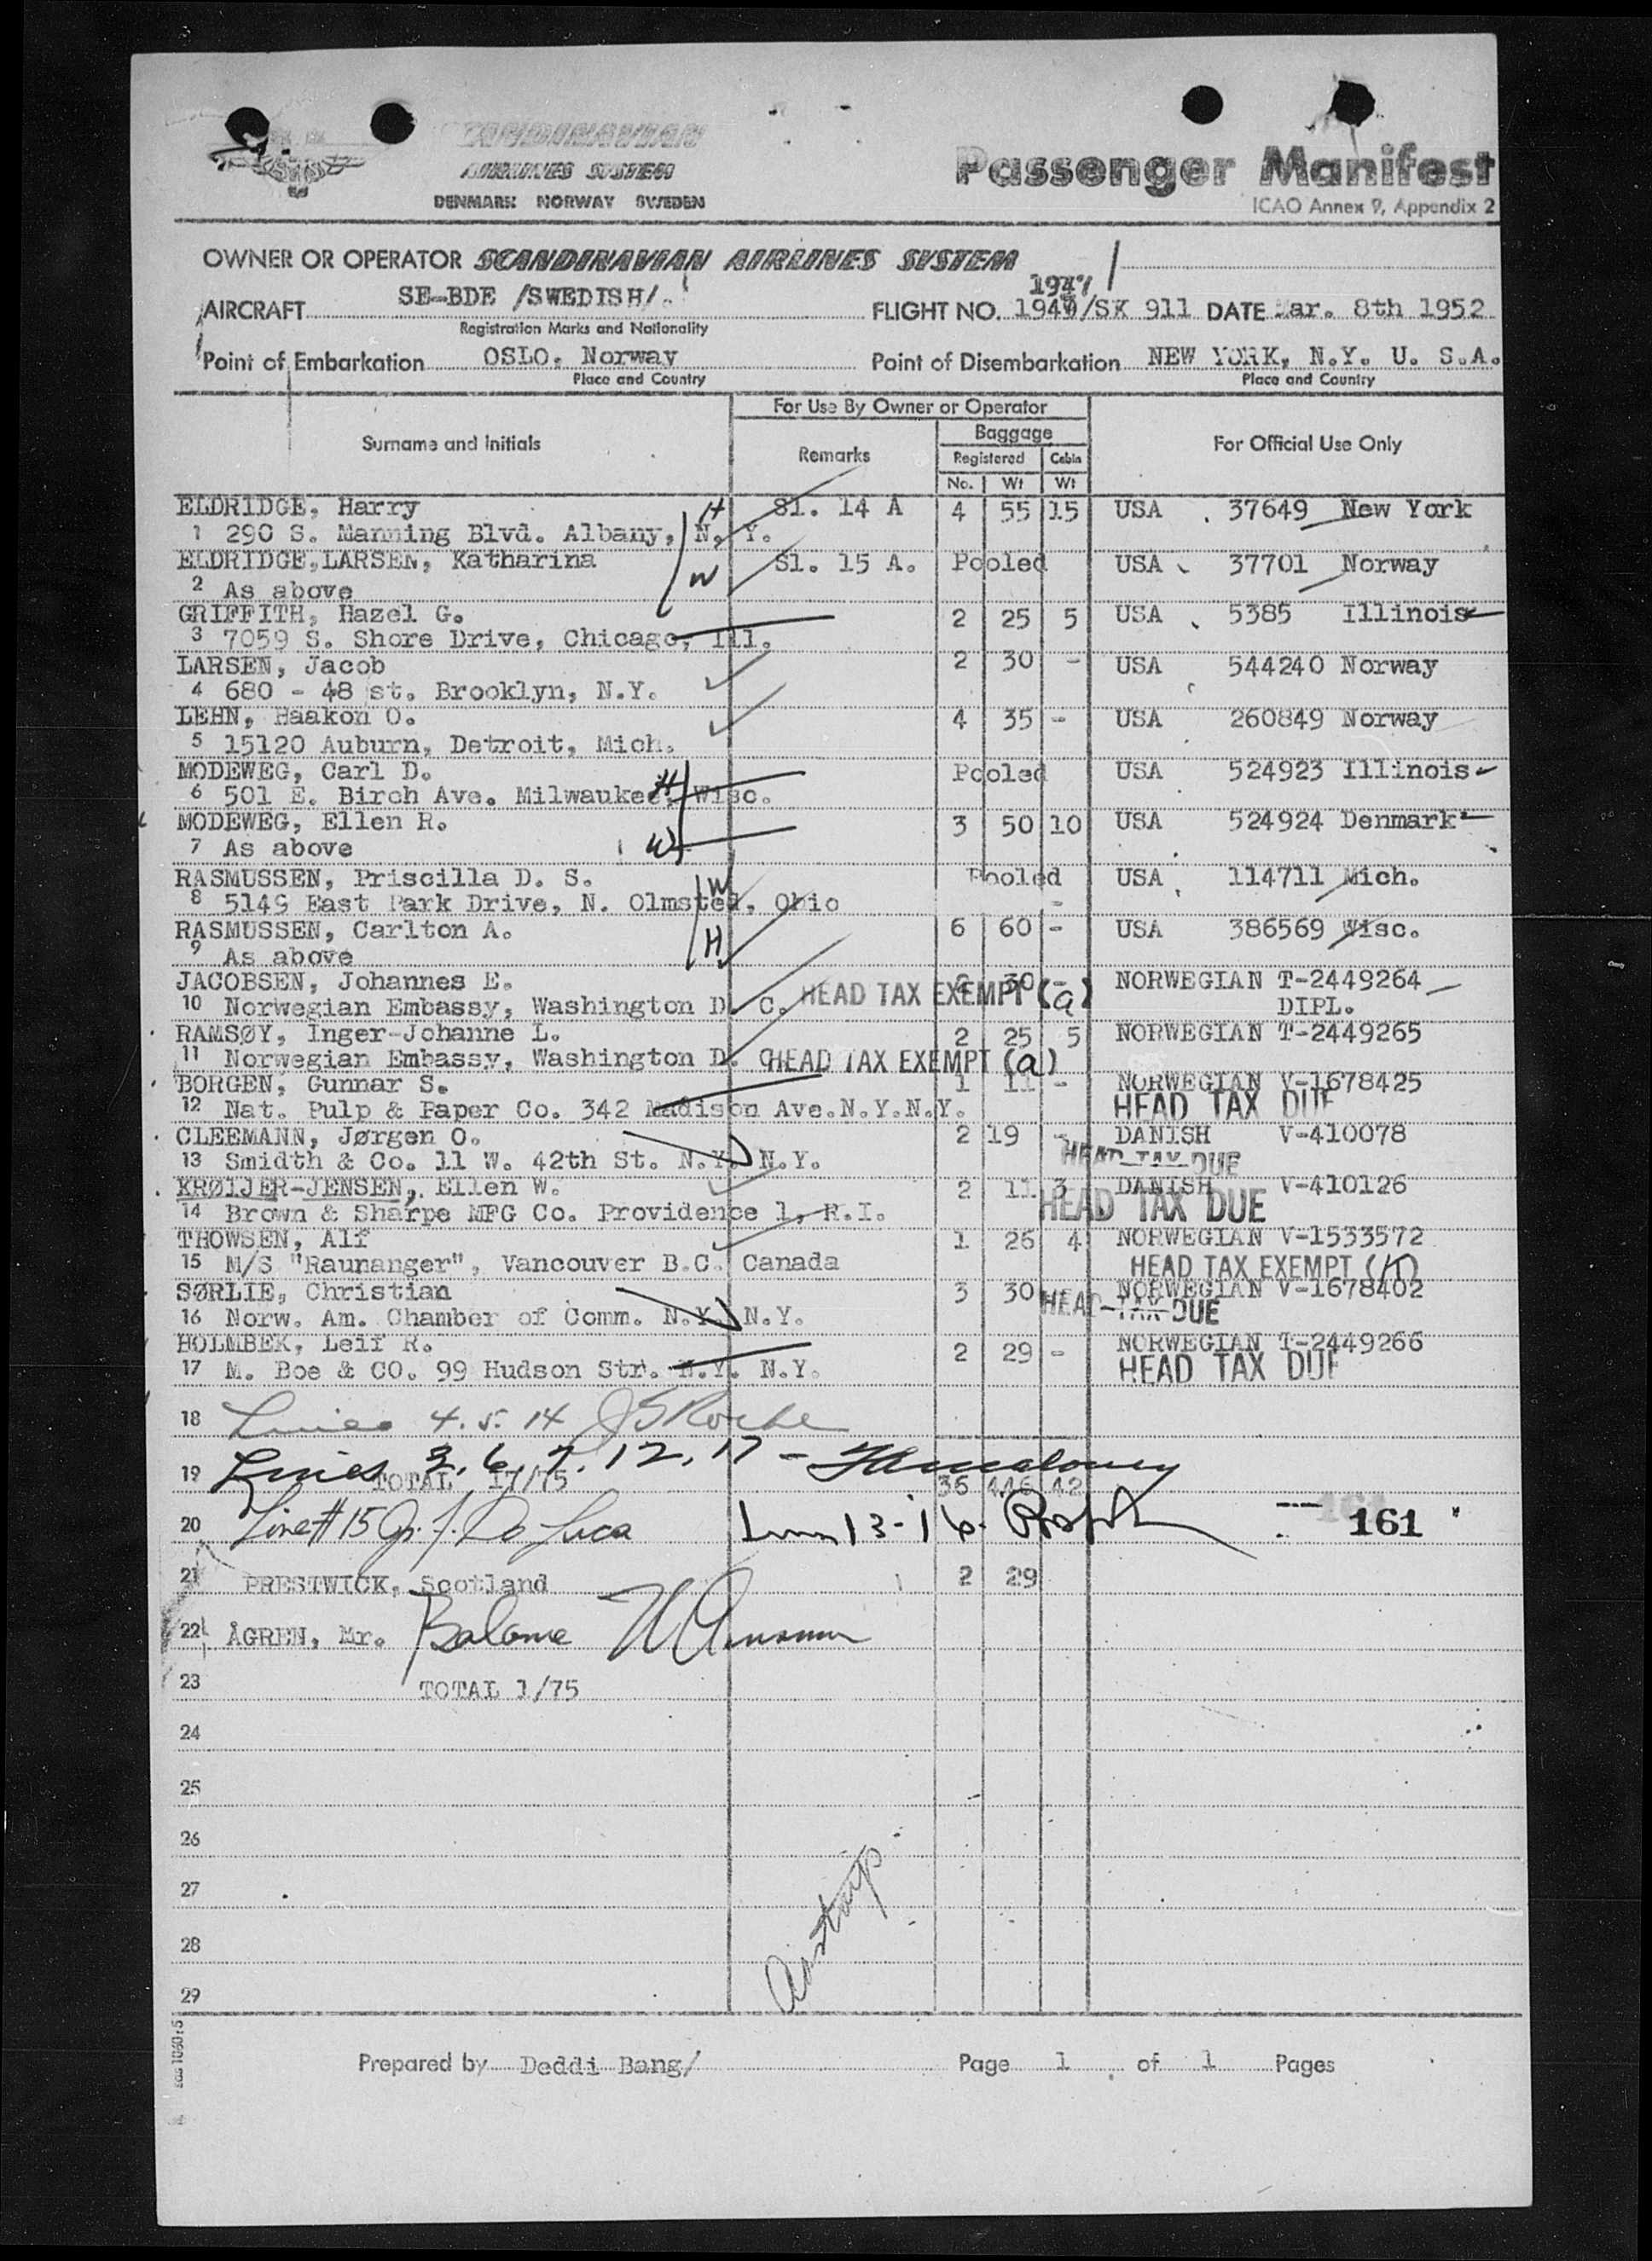 SCANDINAVIAN
AIRLINES SYSTEM
DENMARK NORWAY SWEDEN
Passenger Manifest
ICAO Annex 9, Appendix 2
OWNER OR OPERATOR SCANDINAVIAN AIRLINES SYSTEM
1947
AIRCRAFT SE-BDE /SWEDISH/. FLIGHT NO. /SK 911 DATE Mar. 8th 1952
Registration Marks and Nationality
Point of Embarkation OSLO, Norway Point of Disembarkation NEW YORK, N.Y. U. S.A.
Place and Country Place and Country
For Use By Owner or Operator
Surname and Initials Remarks Baggage For Official Use Only
Registered Cabin
No. Wt Wt
ELDRIDGE, Harry H Sl. 14 A 4 55 15 USA 37649 New York
1 290 S. Manning Blvd. Albany, N. Y.
ELDRIDGE,LARSEN, Katharina W Sl. 15 A. Pooled USA 37701 Norway
2 As above
GRIFFITH, Hazel G. 2 25 5 USA 5385 Illinois
3 7059 S. Shore Drive, Chicago, Ill.
LARSEN, Jacob 2 30 - USA 544240 Norway
4 680 - 48 st. Brooklyn, N.Y.
LEHN, Haakon O. 4 35 - USA 260849 Norway
5 15120 Auburn, Detroit, Mich.
MODEWEG, Carl D. H Pooled USA 524923 Illinois
6 501 E. Birch Ave. Milwaukee, Wisc.
MODEWEG, Ellen R. W 3 50 10 USA 524924 Denmark
7 As above
RASMUSSEN, Priscilla D. S. W Pooled USA 114711 Mich.
8 5149 East Park Drive, N. Olmsted, Ohio -
RASMUSSEN, Carlton A. H 6 60 - USA 386569 Wisc.
9 As above
JACOBSEN, Johannes E. 30 - NORWEGIAN T-2449264
10 Norwegian Embassy, Washington D. C. HEAD TAX EXEMPT (a) DIPL.
RAMSØY, Inger-Johanne L. 2 25 5 NORWEGIAN T-2449265
11 Norwegian Embassy, Washington D. C HEAD TAX EXEMPT (a)
BORGEN, Gunnar S. 1 11 - NORWEGIAN V-1678425
12 Nat. Pulp & Paper Co. 342 Madison Ave.N.Y.N.Y. HEAD TAX DUE
CLEEMANN, Jørgen O. 2 19 - DANISH V-410078
13 Smidth & Co. 11 W. 42th St. N.Y. N.Y. HEAD TAX DUE
KRØIJER-JENSEN, Ellen W. 2 11 3 DANISH V-410126
14 Brown & Sharpe MFG Co. Providence 1, R.I. HEAD TAX DUE
THOWSEN, Alf 1 26 4 NORWEGIAN V-1533572
15 M/S "Raunanger", Vancouver B.C. Canada HEAD TAX EXEMPT
SØRLIE, Christian 3 30 NORWEGIAN V-1678402
16 Norw. Am. Chamber of Comm. N.Y. N.Y. HEAD TAX DUE
HOLMBEK, Leif R. 2 29 - NORWEGIAN T-2449266
17 M. Boe & CO. 99 Hudson Str. N.Y. N.Y. HEAD TAX DUE
18 Lines 4. 5. 14 JS Roche
19 Lines 3. 6. 7. 12. 17 -
TOTAL 17/75 36 446 42
20 Line # 15 J. De Luca 13-16. 161
21 PRESTWICK, Scotland 2 29
22 ÅGREN, Mr. Balance
23 TOTAL 1/75
24
25
26
27
28
29
Prepared by Deddi Bang/ Page 1 of 1 Pages